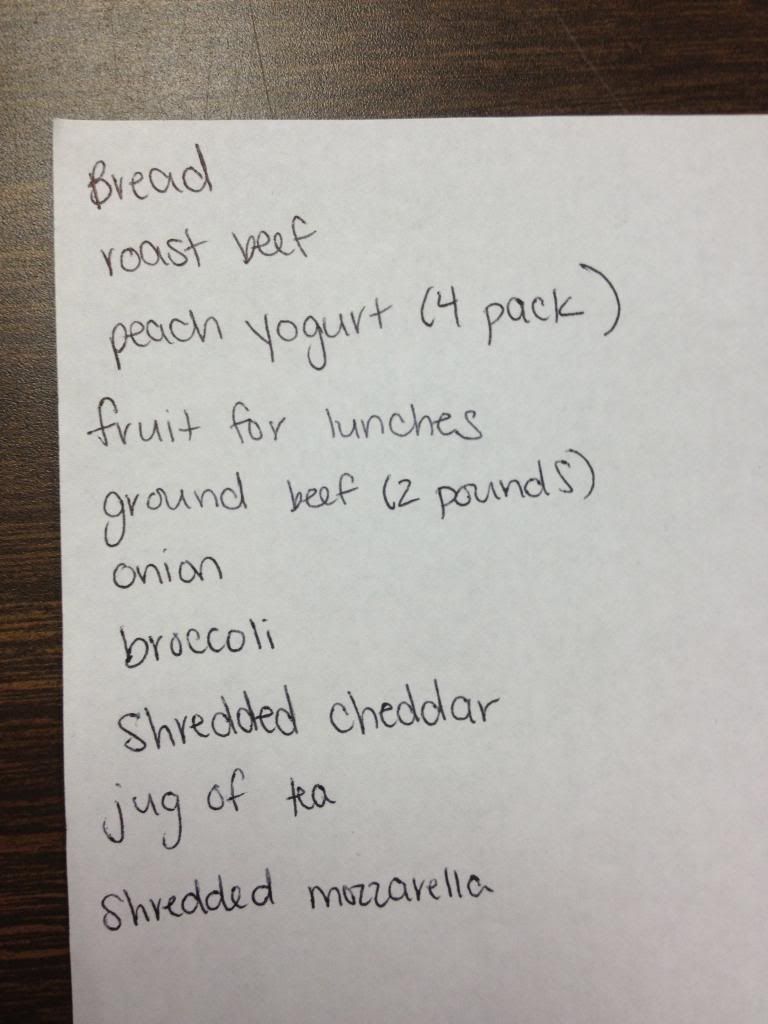 Bread
roast beef
peach yogurt (4 pack)
fruit for lunches
ground beef (2 pounds)
onion
broccoli
Shredded cheddar
jug of tea
Shredded mozzarella